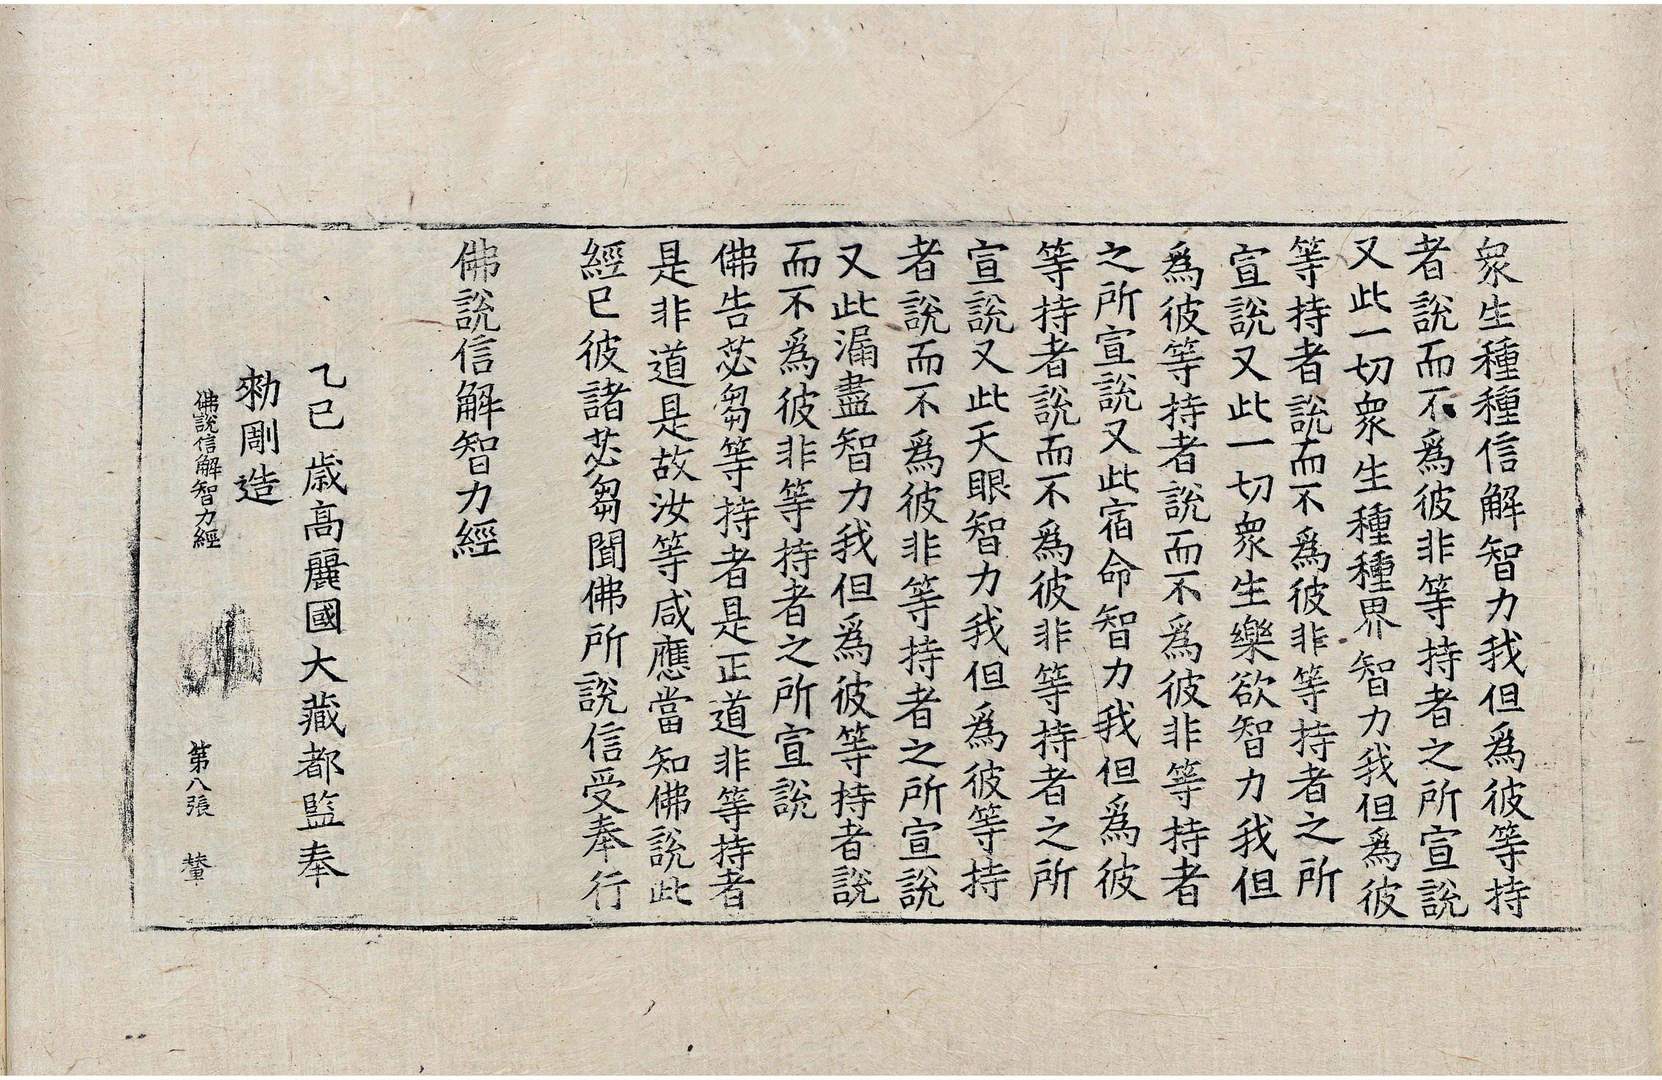 衆生種種信解智力我但爲彼等持
者說而不爲彼非等持者之所宣說
又此一切衆生種種界智力我但爲彼
等持者說而不爲彼非等持者之所
宣說又此一切衆生樂欲智力我但
爲彼等持者說而不爲彼非等持者
之所宣說又此宿命智力我但爲彼
等持者說而不爲彼非等持者之所
宣說又此天眼智力我但爲彼等持
者說而不爲彼非等持者之所宣說
又此漏盡智力我但爲彼等持者說
而不爲彼非等持者之所宣說
佛告苾芻等持者是正道非等持者
是非道是故汝等咸應當知佛說此
經已彼諸苾芻聞佛所說信受奉行
佛說信解智力經
乙巳歲高麗國大藏都監奉
勑彫造
佛說信解智力經 第八張 輦